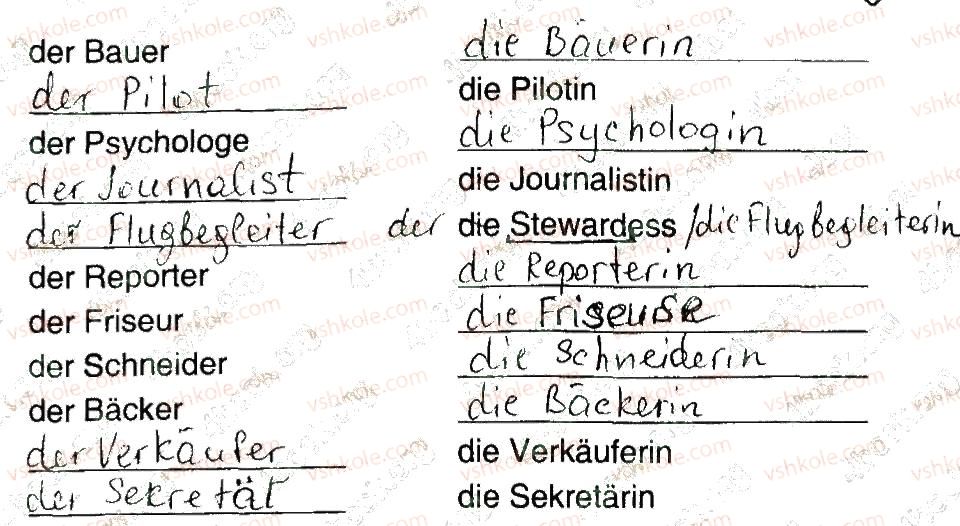 der Bauer die Bäuerin
der Pilot die Pilotin
der Psychologe die Psychologin
der Journalist die Journalistin
der Flugbegleiter der die Stewardess/die Flugbegleiterin
der Reporter die Reporterin
der Friseur die Friseuse
der Schneider die Schneiderin
der Bäcker die Bäckerin
der Verkäufer die Verkäuferin
der Sekretär die Sekretärin